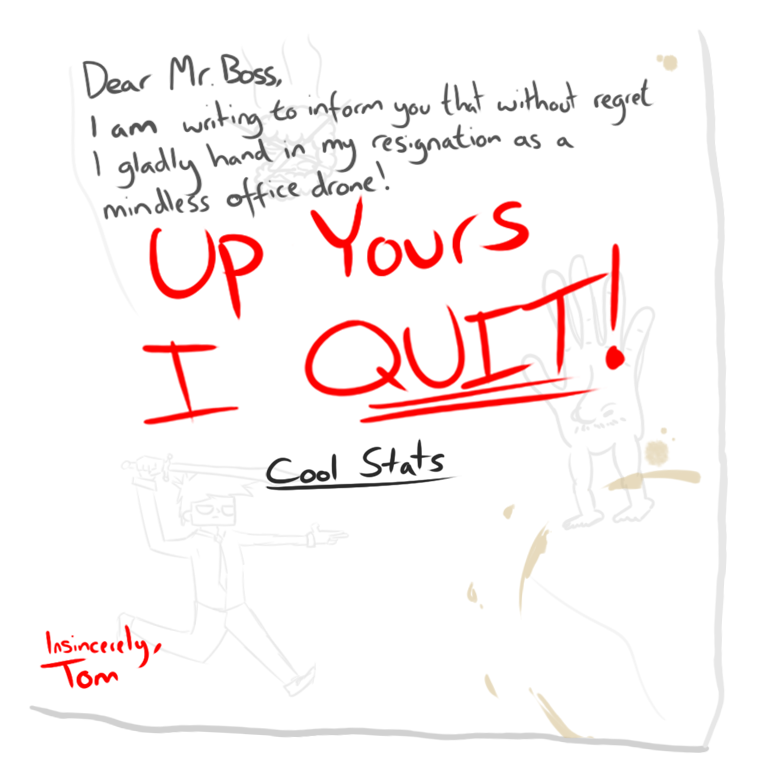 Dear Mr. Boss,
I am writing to inform you that without regret
I gladly hand in my resignation as a
mindless office drone!
Up Yours
I QUIT!
Cool Stats
Insincerely,
Tom